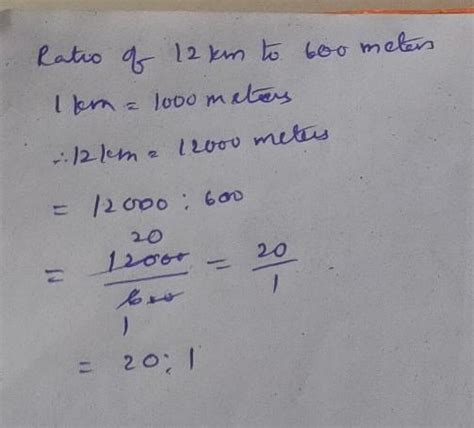 Ratio of 12 km to 600 meters
1 km = 1000 meters
∴ 12 km = 12000 meters
= 12000 : 600
20
= 12000/600 = 20/1
1
= 20 : 1